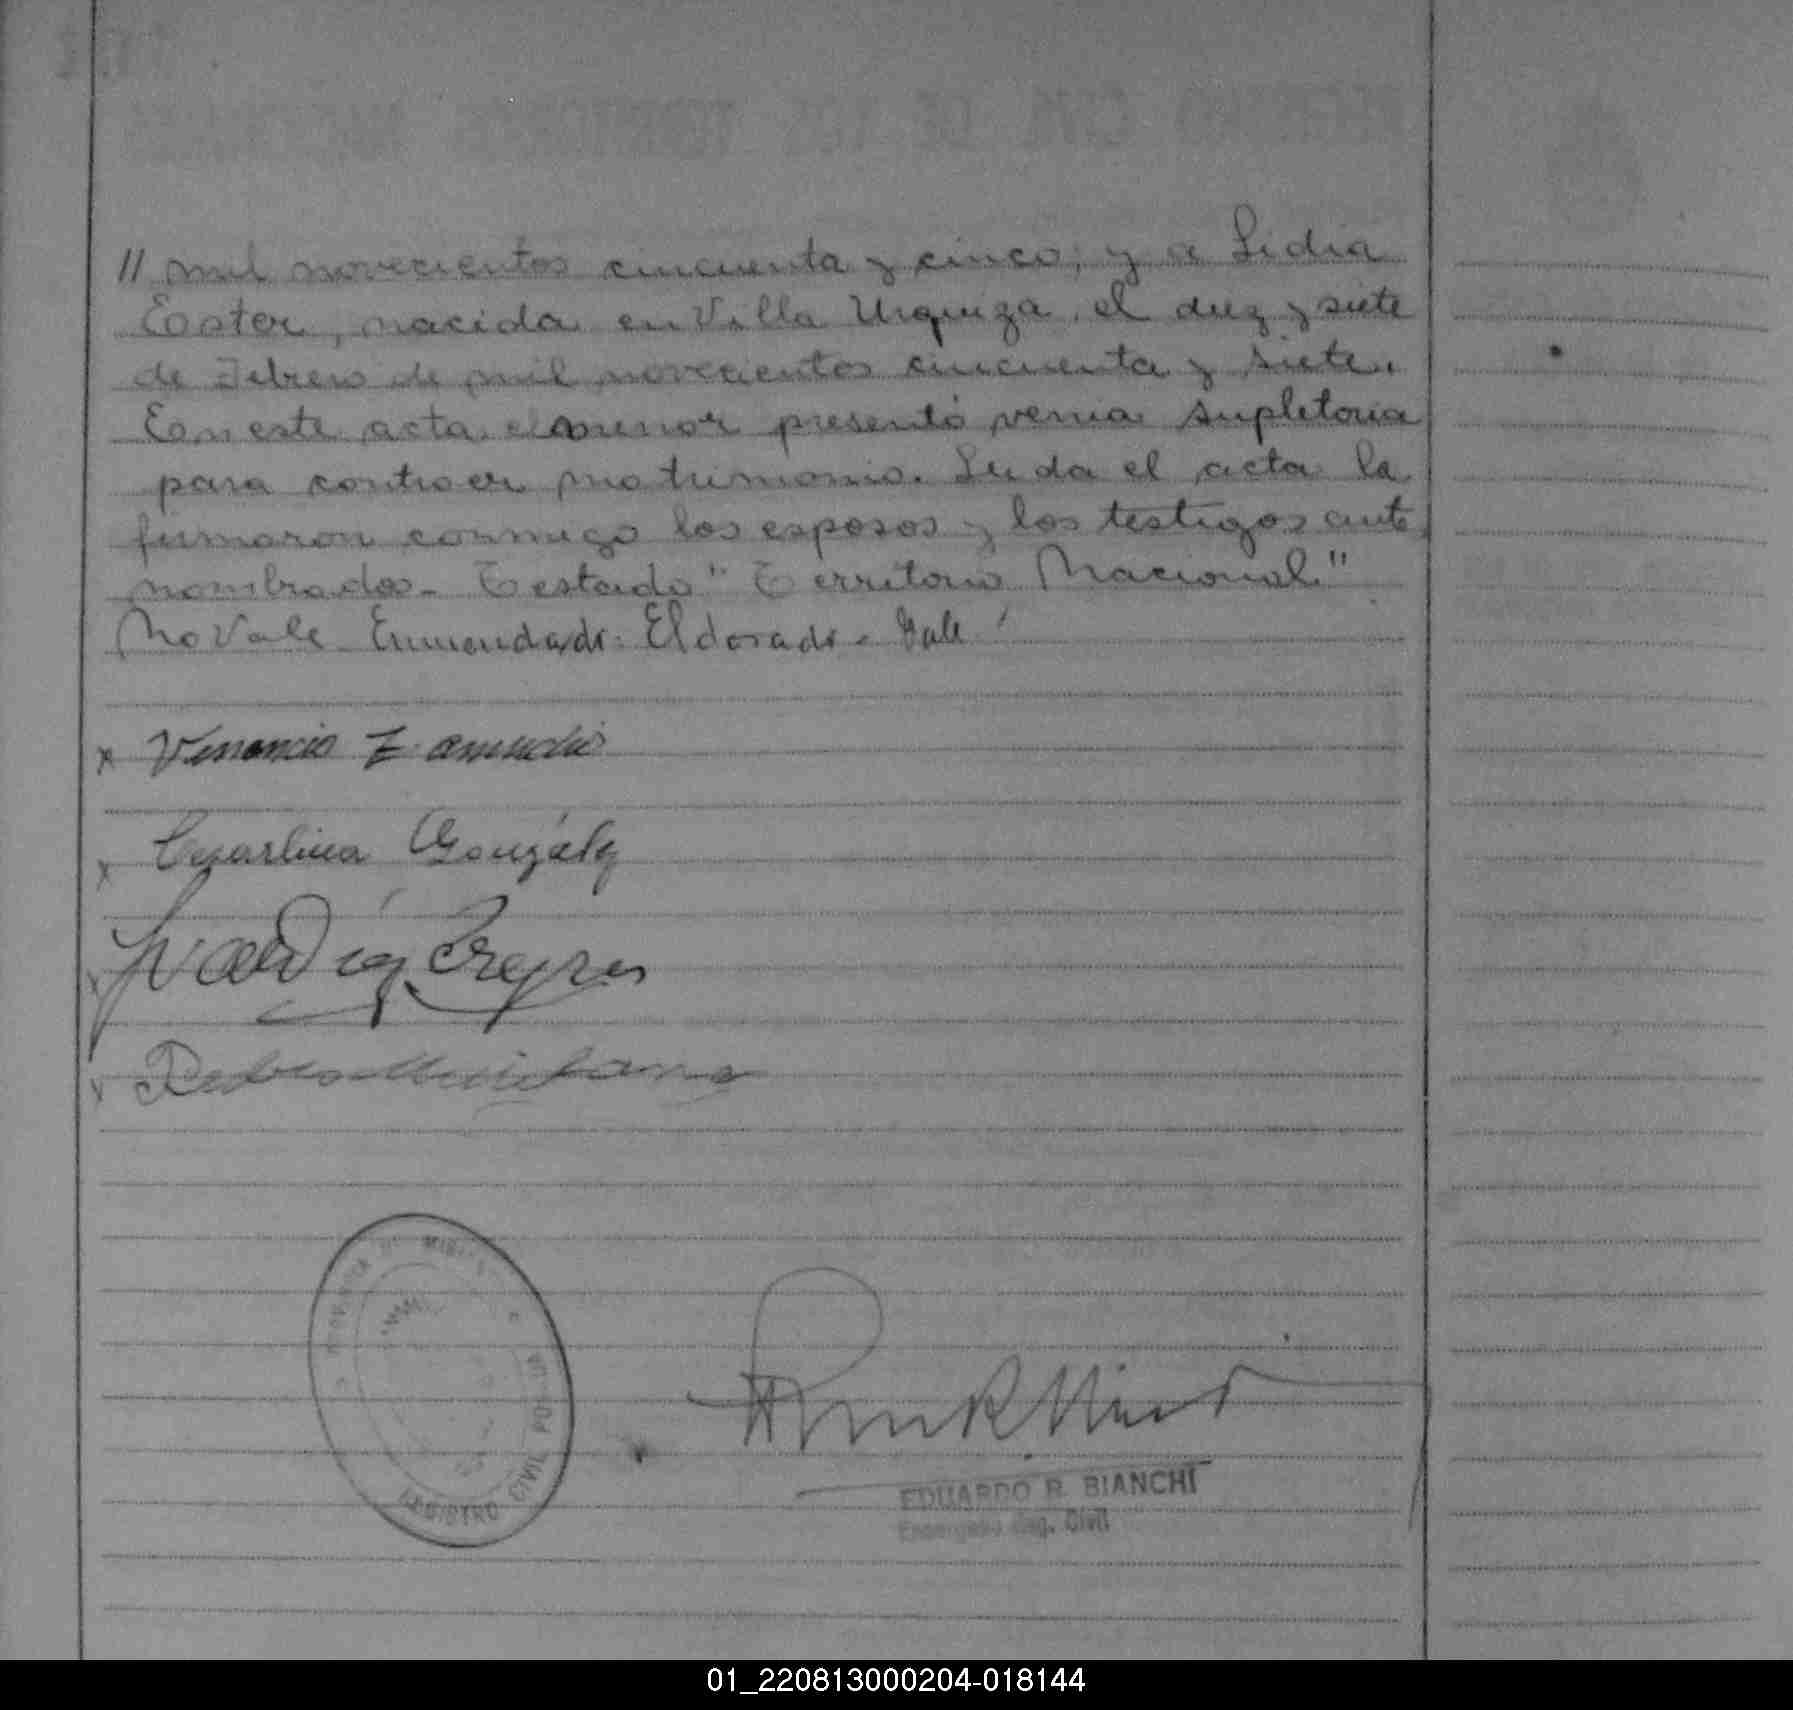 // mil novecientos cincuenta y cinco; y a Lidia
Ester, nacida en Villa Urquiza, el diez y siete
de Febrero de mil novecientos cincuenta y siete.
En este acta el menor presentó venia supletoria
para contraer matrimonio. Leida el acta la
firmaron conmigo los esposos y los testigos ante
nombrados.- Testado "Territorio Nacional."
No Vale Enmendado: Eldorado - Vale
x Venancio Z
x González
x
x Pedro
REGISTRO CIVIL
EDUARDO R. BIANCHI
Encargado Reg. Civil
01_220813000204-018144